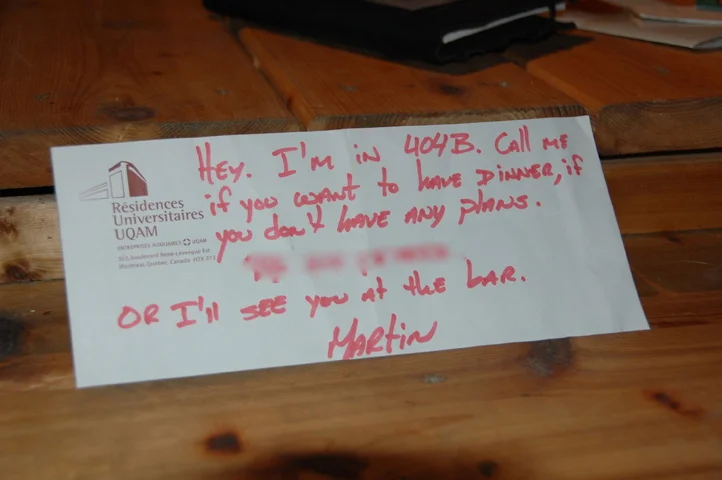 Résidences
Universitaires
UQAM
HEY. I'M in 404B. CAll ME
if you wANT to hAVE DiNNER, if
you don't hAVE ANY plANS.
OR I'll SEE you AT the bAR.
MARtiN